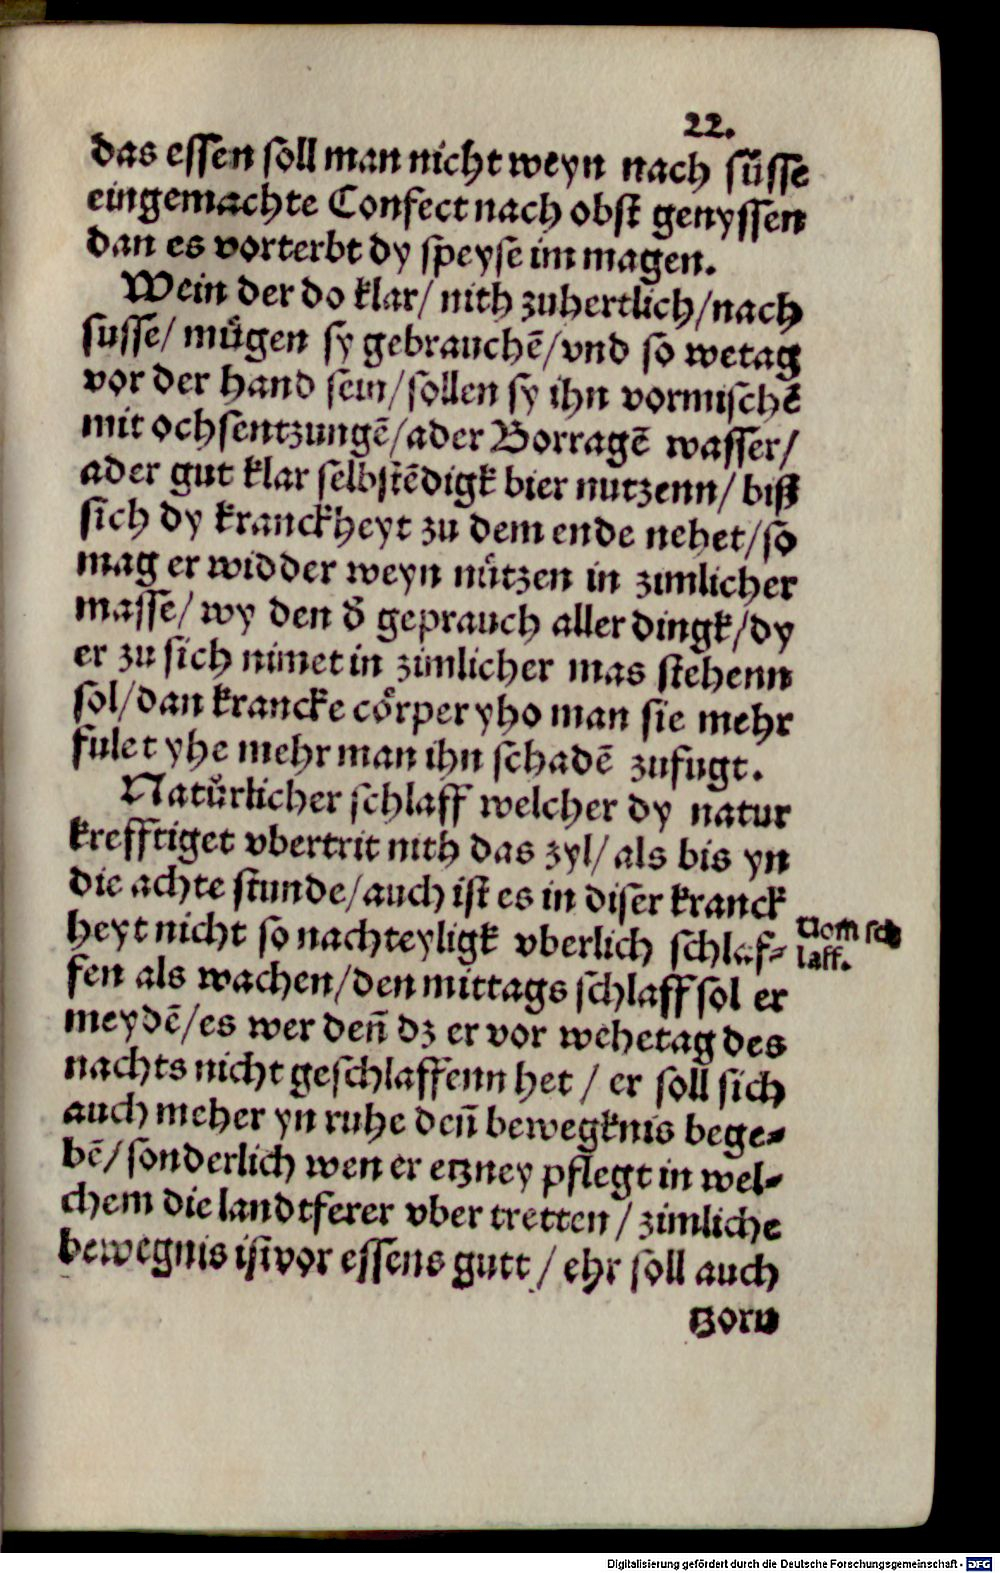 22.
das essen soll man nicht weyn nach süsse
eingemachte Confect nach obst genyssen
dan es vorterbt dy speyse im magen.
Wein der do klar/ nith zuhertlich/nach
susse/ mügen sy gebrauchē/vnd so wetag
vor der hand sein/sollen sy ihn vormischē
mit ochsentzungē/ader Borragē wasser/
ader gut klar selbstēdigk bier nutzenn/ biß
sich dy kranckheyt zu dem ende nehet/so
mag er widder weyn nützen in zimlicher
masse/ wy den d̄ geprauch aller dingk/dy
er zu sich nimet in zimlicher mas stehenn
sol/dan krancke cörper yho man sie mehr
fulet yhe mehr man ihn schadē zufugt.
Natürlicher schlaff welcher dy natur
krefftiget vbertrit nith das zyl/ als bis yn
die achte stunde/auch ist es in diser kranck
heyt nicht so nachteyligk vberlich schlaf-
fen als wachen/den mittags schlaff sol er
meydē/es wer deñ dz er vor wehetag des
nachts nicht geschlaffenn het / er soll sich
auch meher yn ruhe deñ bewegknis bege-
bē/sonderlich wen er ertzney pflegt in wel-
chem die landtferer vber tretten / zimliche
bewegnis ist vor essens gutt / ehr soll auch
tzorn
Vom sch
laff.
Digitalisierung gefördert durch die Deutsche Forschungsgemeinschaft - DFG